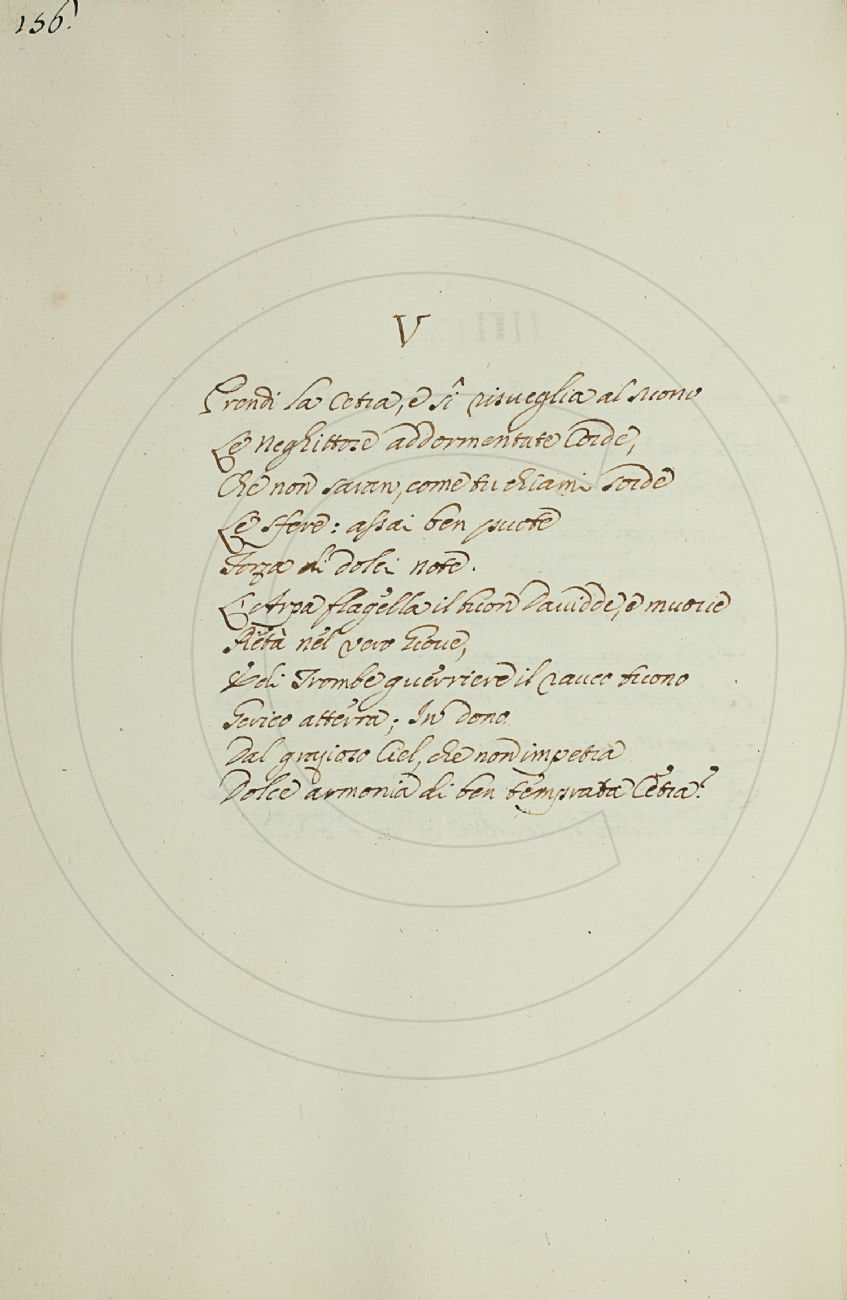 156.
V
Prendi la Cetra, e sì risveglia al suono
Le Neghittose addormentate Corde,
Che non saran, come tu chiami sorde
Le sfere: assai ben puote
Forza di dolci note.
L'Arpa flagella il buon Davidde, e muove
Pietà nel vero Giove,
E di Trombe guerriere il rauco suono
Gerico atterra; In dono
Dal grazioso Ciel, che non impetra
Dolce armonia di ben temprata Cetra?